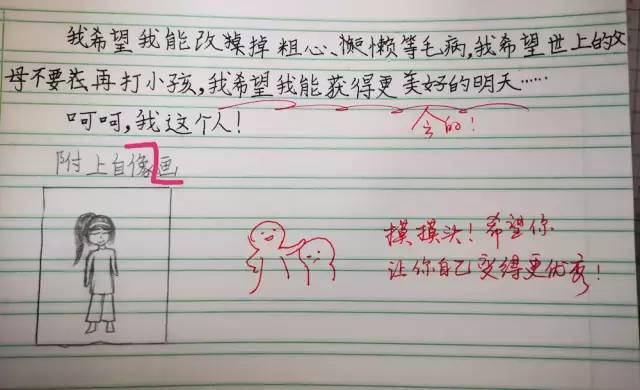 我希望我能改掉粗心、懒懒等毛病,我希望世上的父
母不要再打小孩,我希望我能获得更美好的明天……
会的!
呵呵,我这个人!
附上自像画
摸摸头!希望你
让你自己变得更优秀!